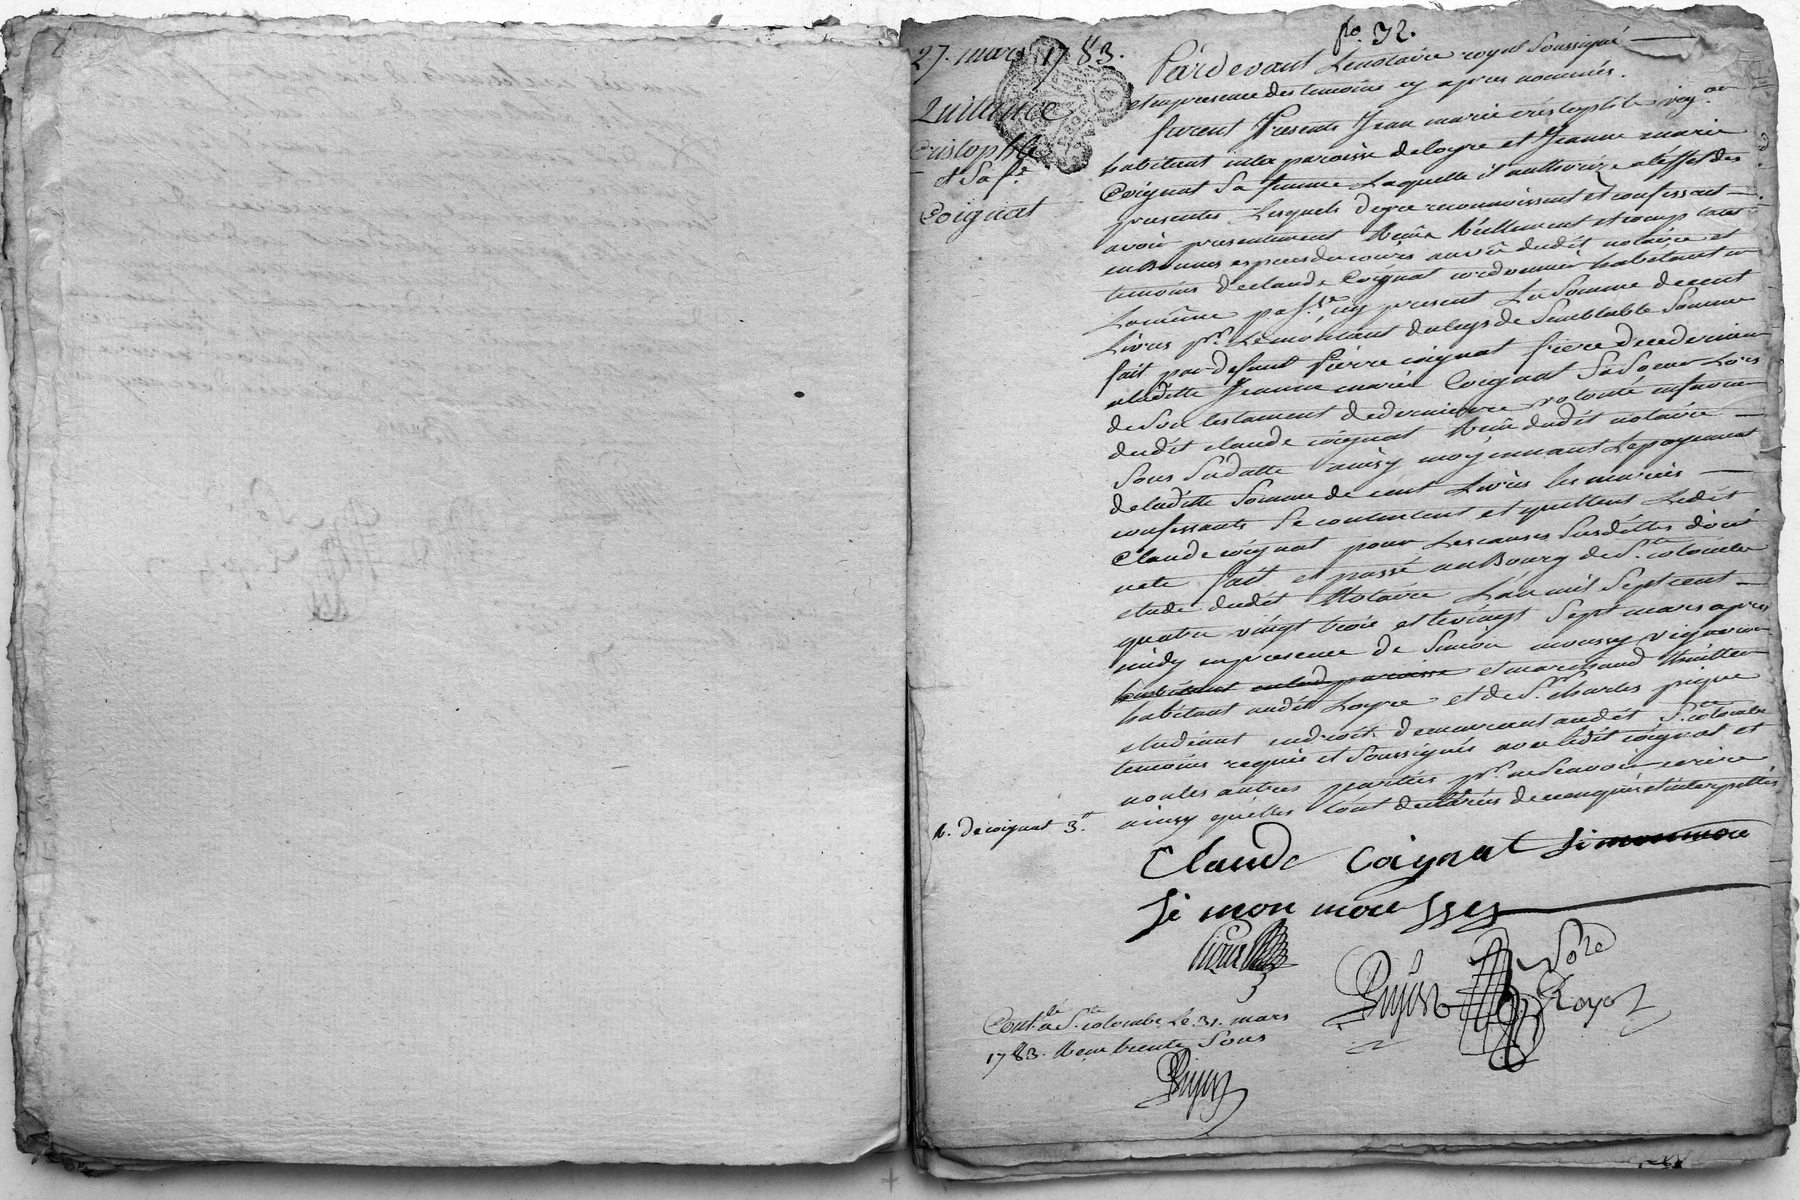 fo. 32.
27. mars 1783.
Quittance
Cristophle
et Sa fe.
Coignat
Pardevant Lenotaire royal Soussigné
et enpresence des temoins cy apres nommés.
furent Presents Jean marie cristophle vig.on
habitant enla paroisse deloyre et Jeanne marie
Coignat Sa femme Laquelle il authorize aleffet des
presentes Lesquels degre reconnoissent et confessent
avoir presentement Receu Réellement et comptant
en Bonnes especes ducours auvû dudit notaire et
temoins declaude Coignat cordonnier habitant en
Lameme par.sse cy present La Somme decent
Livres pr. Lemontant dulegs de Semblable Somme
fait par defunt Pierre coignat frere decedernier
aladitte Jeanne marie Coignat Sa Soeur Lors
de Son testament dederniere volonté enfaveur
dudit claude coignat Receu dudit notaire
Sous Sa datte ainsy moyennant Lepayement
deladitte Somme de cent Livres les mariés
confessants Se contentent et quittent Ledit
Claude coignat pour Les causes Susdittes dont
acte fait et passé au Bourg de Ste. colombe
etude dudit Notaire L'an mil Sept cent
quatre vingt trois et levingt Sept mars apres
midy enpresence de Simon moussy vigneron
habitant enlad. paroisse et marchand
habitant audit Loyre et de Sr. charles pique
etudiant endroit demeurant audit Ste. colombe
temoins requis et Soussignés avec ledit coignat et
non les autres parties pr. ne Scavoir ecrire
ainsy quelles lont declarées de ce enquises et interpellées
R. de coignat 3.tt
Claude Coignat
Si mon mou sses
Pique
Dujast Nore. Royal
Cont.lé a Ste. colombe Le 31. mars
1783. Receu trente Sous
Dujast